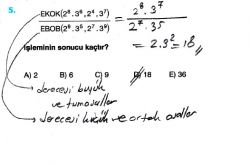 5.
EKOK(2⁸.3⁶,2⁴.3⁷)
EBOB(2⁸.3⁵,2⁷.3⁹)
= 2⁸.3⁷
2⁷.3⁵
= 2.3² = 18
işleminin sonucu kaçtır?
A) 2 B) 6 C) 9 D) 18 E) 36
derecesi büyük
ve tüm asallar
derecesi küçük ve ortak asallar